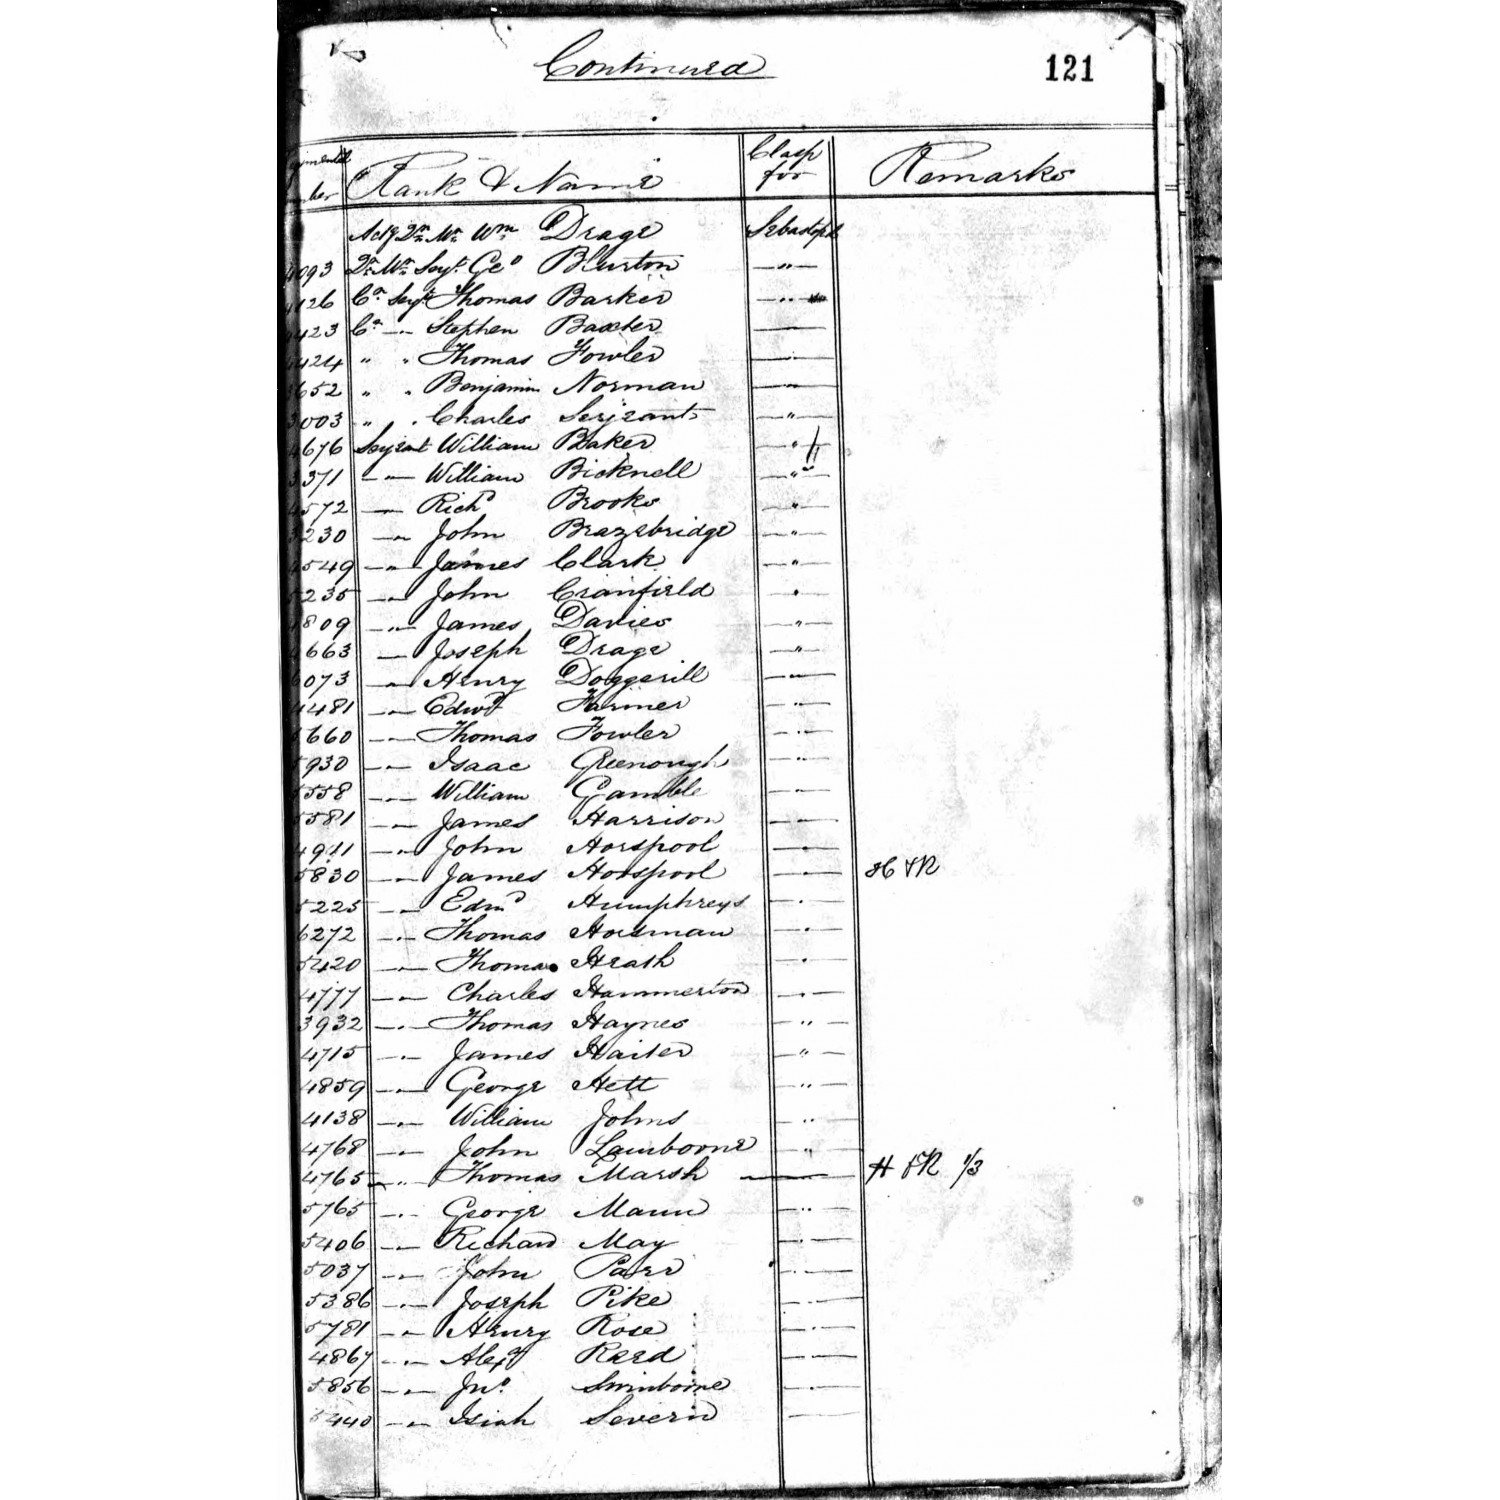 Continued
121
Rank & Name Clasp for Remarks
Actg Qr. Mr. Wm. Drage Sebastopol
4093 Qr. Mr. Sergt. Geo Blurton — " —
4126 Cr. Sergt. Thomas Barker — " —
4423 Cr. — " — Stephen Baxter —
4424 " " Thomas Fowler — " —
3652 " " Benjamin Norman — " —
3003 " " Charles Serjeant — " —
4676 Sergeant William Baker — " —
3371 — " — William Bicknell — " —
4572 — " — Richd Brooks — " —
5230 — " — John Brazebridge — " —
4549 — " — James Clark — " —
5235 — " — John Cranfield — " —
4809 — " — James Davies — " —
4663 — " — Joseph Drage — " —
6073 — " — Henry Doggerill — " —
4481 — " — Edwd Farmer — " —
5660 — " — Thomas Fowler — " —
5930 — " — Isaac Greenough — " —
5558 — " — William Gamble — " —
5581 — " — James Harrison — " —
4911 — " — John Horspool — " —
5830 — " — James Horspool — " —
5225 — " — Edmd Humphreys — " —
6272 — " — Thomas Horsman — " —
5420 — " — Thomas Heath — " —
4777 — " — Charles Hammerton — " —
3932 — " — Thomas Haynes — " —
4715 — " — James Haiter — " —
4859 — " — George Hett — " —
4138 — " — William Johns — " —
4768 — " — John Lambourne — " —
4765 — " — Thomas Marsh —
5765 — " — George Mann — " —
5406 — " — Richard May — " —
5037 — " — John Parr — " —
5386 — " — Joseph Pike — " —
5781 — " — Henry Rose — " —
4867 — " — Alexr Read — " —
5856 — " — Jno. Swinborne — " —
5440 — " — Isiah Severn —